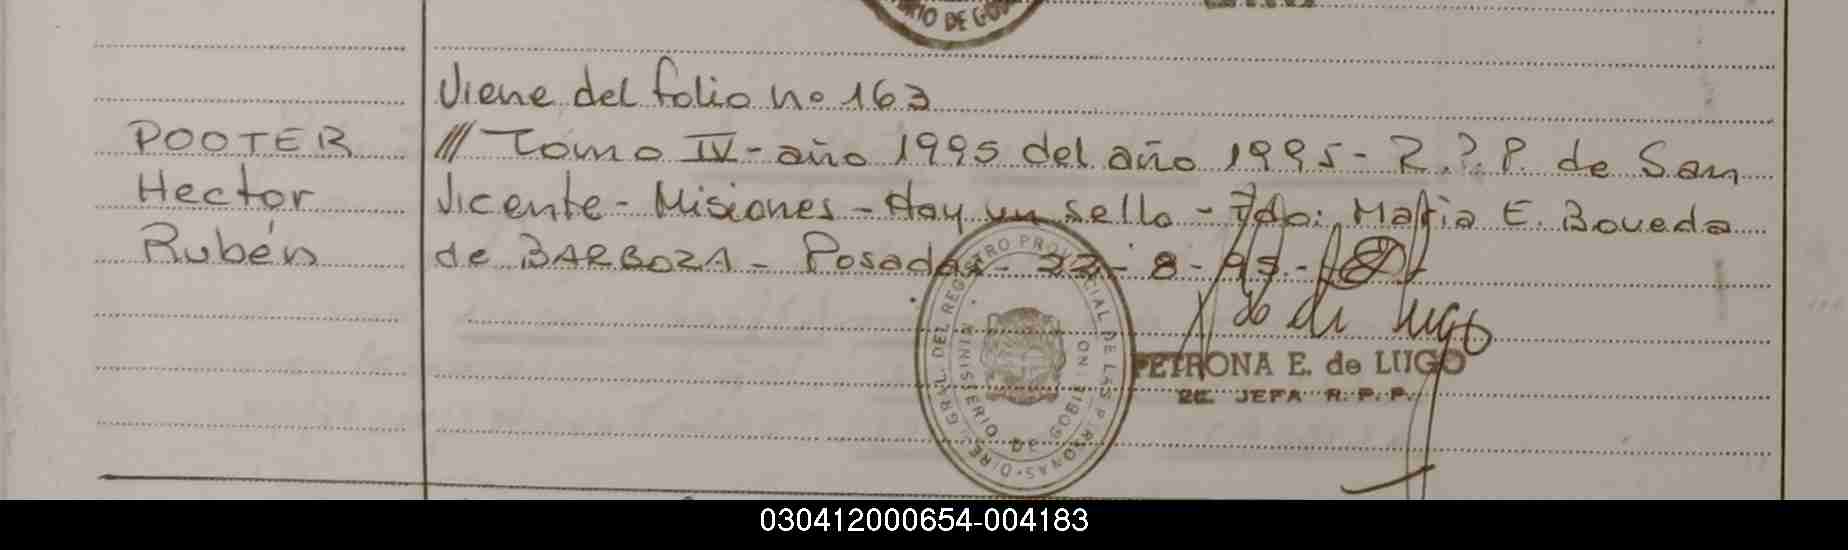 Viene del folio no 163
POOTER
Hector
Rubén
/// Tomo IV - año 1995 del año 1995 - R.P.P. de San
Vicente - Misiones - Hay un sello - Fdo: Maria E. Boveda
de BARBOZA - Posadas - 22 - 8 - 95 -
DIREC. GRAL. DEL REGISTRO PROVINCIAL DE LAS PERSONAS
MINISTERIO DE GOBIERNO
de Lugo
PETRONA E. de LUGO
JEFA R. P. P.
030412000654-004183